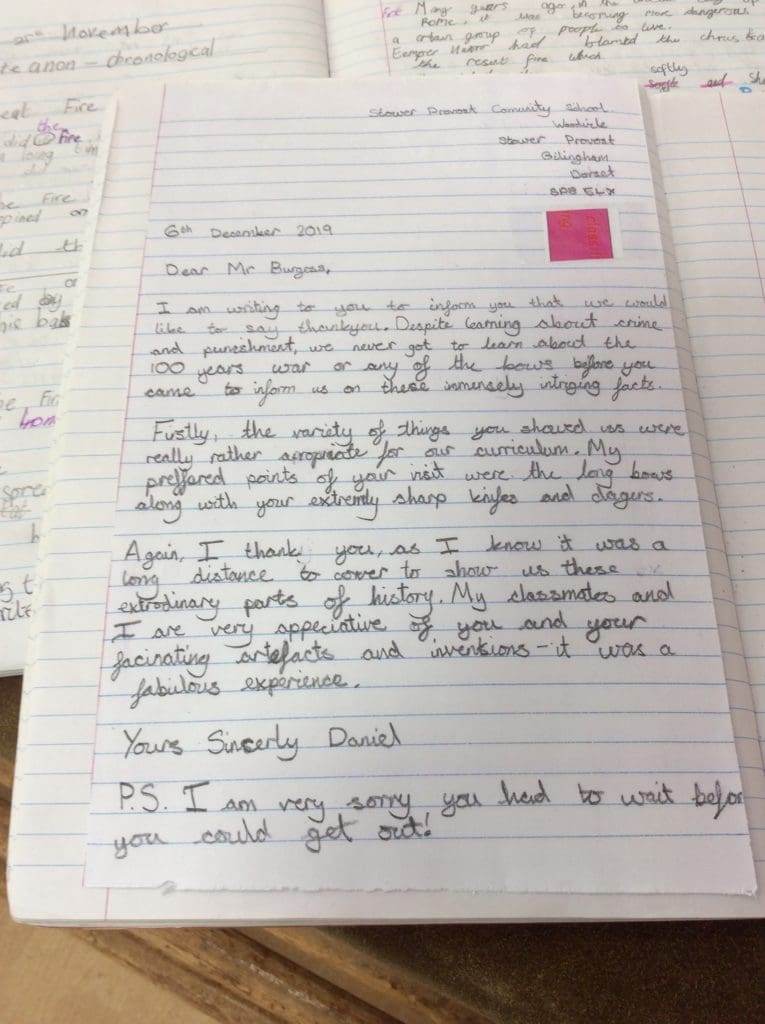 25th November
anon - chronological
Fire
the
Fire
a long
Fire
on
by
his
from
First Many years ago in the
Rome, it was becoming more dangerous
a group of people to live.
had the
the fire which
softly
and
Stower Provost Comunity School
Woodville
Stower Provost
Gilingham
Dorset
6th December 2019
Dear Mr Burgess,
I am writing to you to inform you that we would
like to say thankyou. Despite learning about crime
and punishment, we never got to learn about the
100 years war or any of the bows before you
came to inform us on these immensely intriging facts.
Firstly, the variety of things you showed us were
really rather apropriate for our curriculum. My
preffared points of your visit were the long bows
along with your extremly sharp knifes and dagers.
Again, I thank you, as I know it was a
long distance to cover to show us these
extrodinary parts of history. My classmates and
I are very appeciative of you and your
facinating artefacts and inventions - it was a
fabulous experience.
Yours Sincerly Daniel
P.S. I am very sorry you had to wait befor
you could get out!